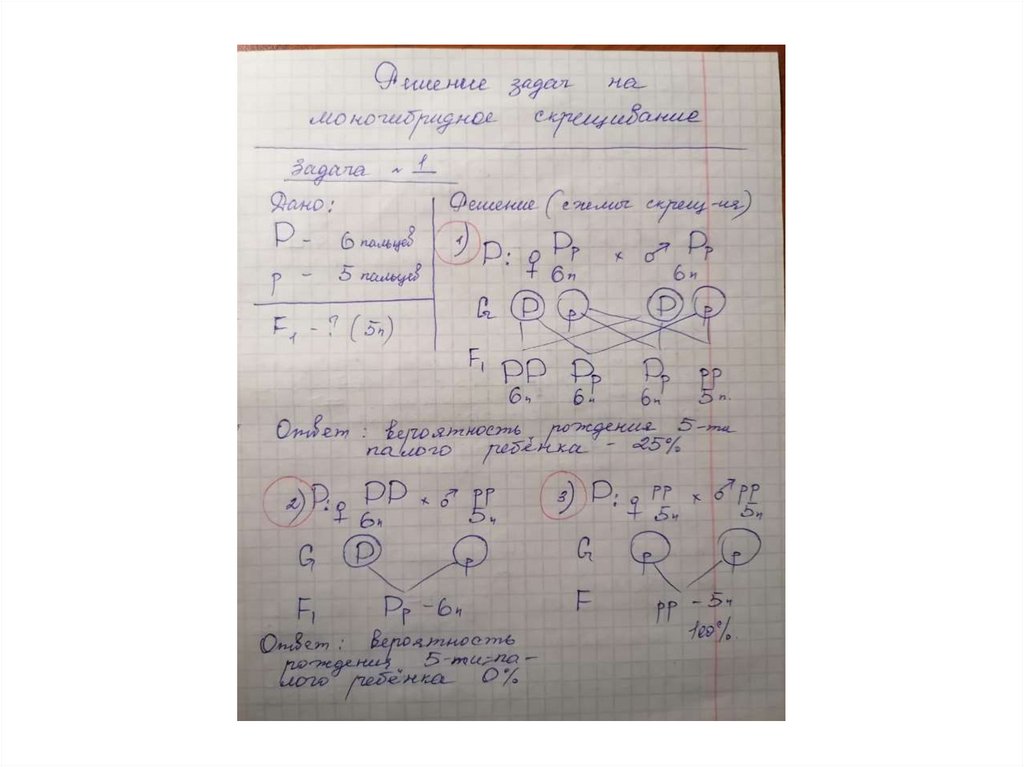 Решение задач на
моногибридное скрещивание
Задача ~ 1
Дано:
P - 6 пальцев
p - 5 пальцев
F1 - ? (5п)
Решение (схемы скрещ-ия)
1) P: ♀ Pp × ♂ Pp
6п 6п
G P p P p
F1 PP Pp Pp pp
6п 6п 6п 5п.
Ответ: вероятность рождения 5-ти
палого ребёнка - 25%
2) P: ♀ PP × ♂ pp
6п 5п
G P p
F1 Pp - 6п
Ответ: вероятность
рождения 5-ти=па-
лого ребёнка 0%
3) P: ♀ pp × ♂ pp
5п 5п
G p p
F pp - 5п
100%